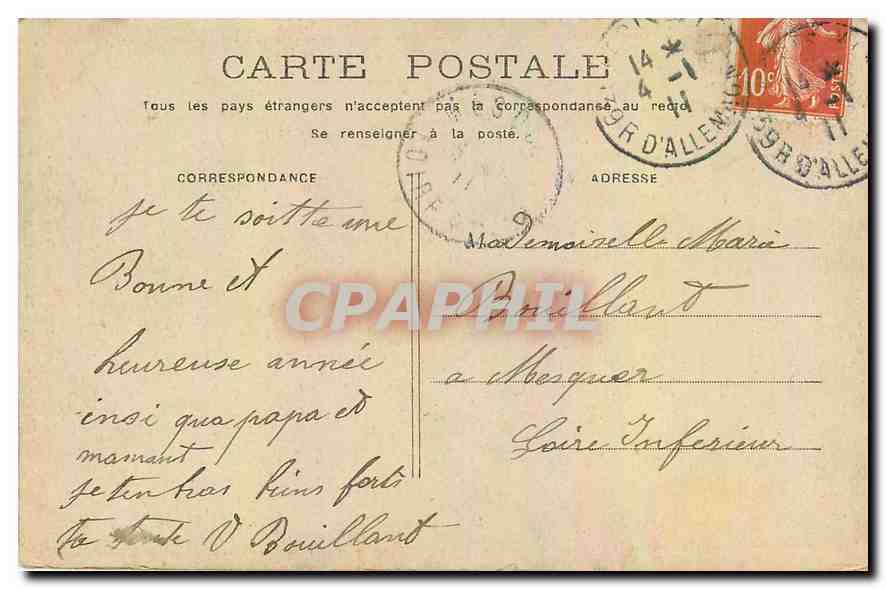 CARTE POSTALE
Tous les pays étrangers n'acceptent pas la correspondance au recto
Se renseigner à la poste.
CORRESPONDANCE
ADRESSE
je te soitte une
Bonne et
heureuse année
insi qua papa et
mamant
je ten bras biens forts
ta tante V Bouillant
Mademoiselle Marie
Bouillant
a Mesquer
Loire Inferieur
10c
POSTES
14 *
4 -1
11
39 R D'ALLEMAG
14 *
4 -1
11
39 R D'ALLE
11
CPAPHIL